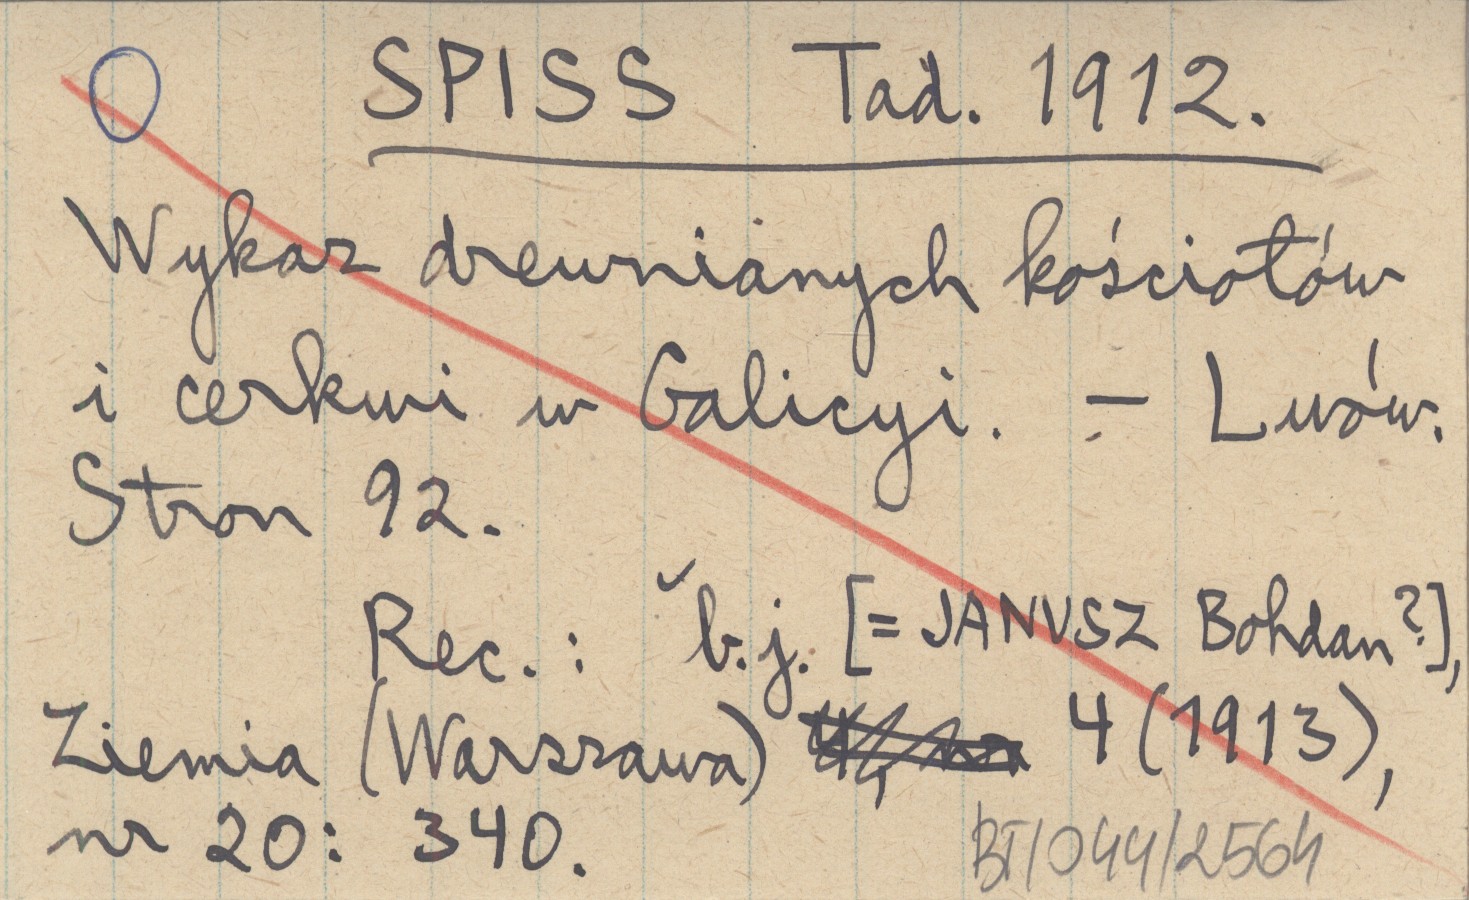 SPISS Tad. 1912.
Wykaz drewnianych kościołów
i cerkwi w Galicyi. – Lwów.
Stron 92.
Rec.: b.j. [= JANUSZ Bohdan?],
Ziemia (Warszawa) 4 (1913),
nr 20: 340.
BT/044/2564